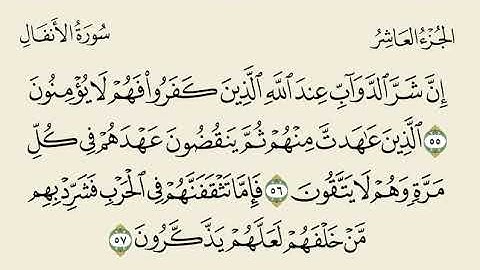 الجُزْءُ العَاشِرُ
سُورَةُ الأَنفَالِ
إِنَّ شَرَّ ٱلدَّوَآبِّ عِندَ ٱللَّهِ ٱلَّذِينَ كَفَرُوا۟ فَهُمْ لَا يُؤْمِنُونَ
٥٥ ٱلَّذِينَ عَٰهَدتَّ مِنْهُمْ ثُمَّ يَنقُضُونَ عَهْدَهُمْ فِى كُلِّ
مَرَّةٍ وَهُمْ لَا يَتَّقُونَ ٥٦ فَإِمَّا تَثْقَفَنَّهُمْ فِى ٱلْحَرْبِ فَشَرِّدْ بِهِم
مَّنْ خَلْفَهُمْ لَعَلَّهُمْ يَذَّكَّرُونَ ٥٧